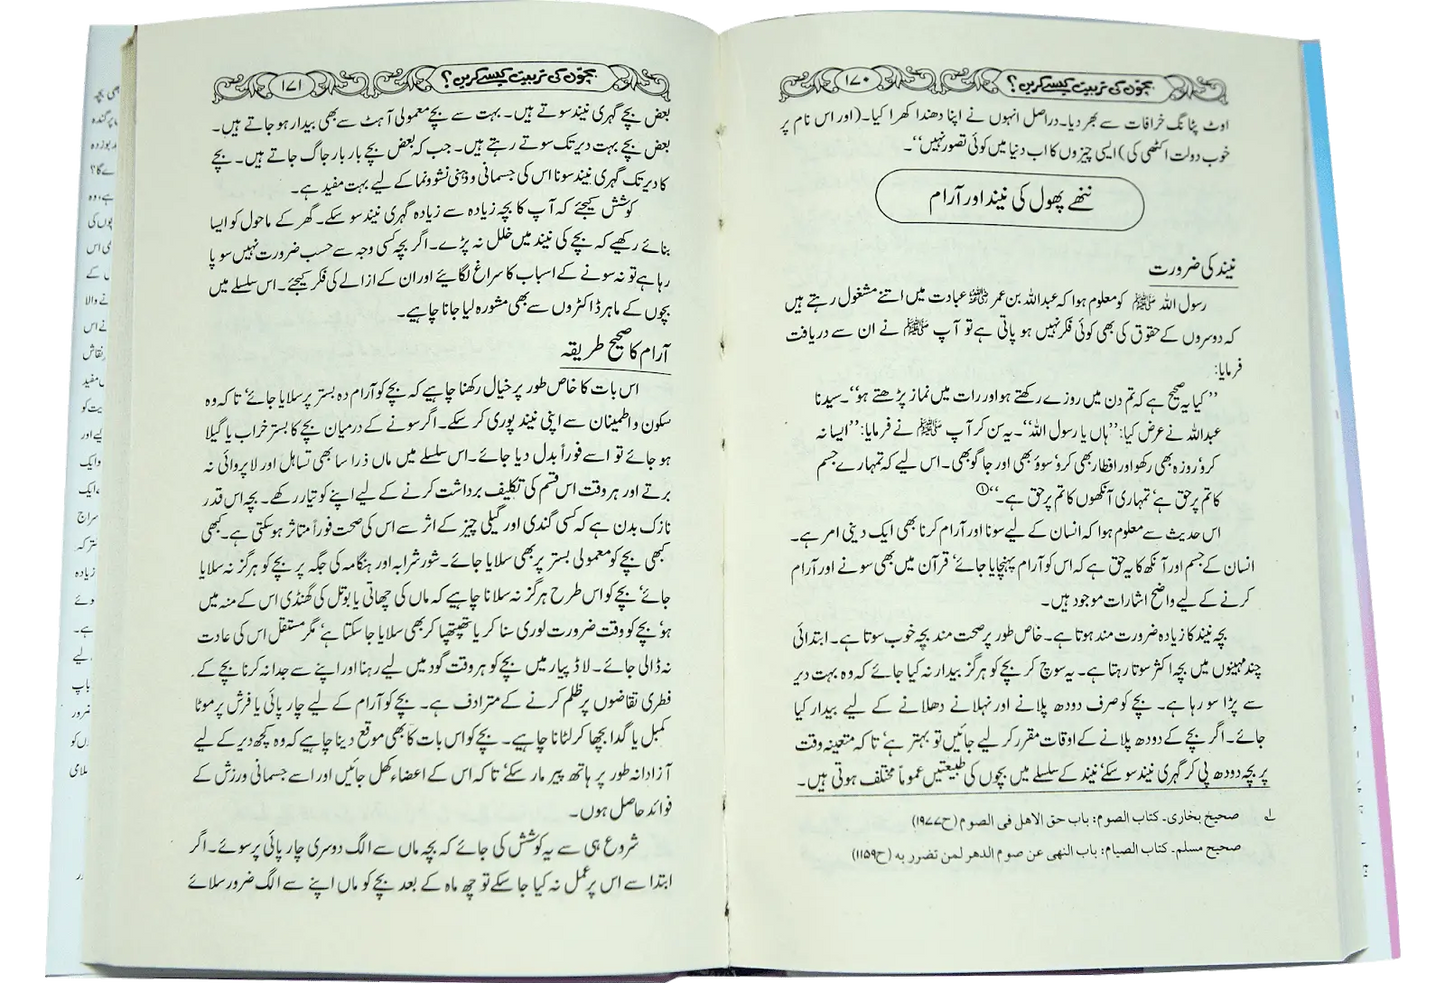 بچّوں کی تربیت کیسے کریں؟ ۱۷۰
اوٹ پٹانگ خرافات سے بھر دیا۔ دراصل انہوں نے اپنا دھندا کھرا کیا۔ (اور اس نام پر
خوب دولت اکٹھی کی) ایسی چیزوں کا اب دنیا میں کوئی تصور نہیں‘‘۔
ننھے پھول کی نیند اور آرام
نیند کی ضرورت
رسول اللہ ﷺ کو معلوم ہوا کہ عبداللہ بن عمر ﷺ عبادت میں اتنے مشغول رہتے ہیں
کہ دوسروں کے حقوق کی بھی کوئی فکر نہیں ہو پاتی ہے تو آپ ﷺ نے ان سے دریافت
فرمایا:
’’کیا یہ صحیح ہے کہ تم دن میں روزے رکھتے ہو اور رات میں نماز پڑھتے ہو‘‘۔ سیدنا
عبداللہ نے عرض کیا: ’’ہاں یا رسول اللہ‘‘۔ یہ سن کر آپ ﷺ نے فرمایا: ’’ایسا نہ
کرو‘ روزہ بھی رکھو اور افطار بھی کرو‘ سوؤ بھی اور جاگو بھی۔ اس لیے کہ تمہارے جسم
کا تم پر حق ہے‘ تمہاری آنکھوں کا تم پر حق ہے۔‘‘ ①
اس حدیث سے معلوم ہوا کہ انسان کے لیے سونا اور آرام کرنا بھی ایک دینی امر ہے۔
انسان کے جسم اور آنکھ کا یہ حق ہے کہ اس کو آرام پہنچایا جائے‘ قرآن میں بھی سونے اور آرام
کرنے کے لیے واضح اشارات موجود ہیں۔
بچہ نیند کا زیادہ ضرورت مند ہوتا ہے۔ خاص طور پر صحت مند بچہ خوب سوتا ہے۔ ابتدائی
چند مہینوں میں بچہ اکثر سوتا رہتا ہے۔ یہ سوچ کر بچے کو ہرگز بیدار نہ کیا جائے کہ وہ بہت دیر
سے پڑا سو رہا ہے۔ بچے کو صرف دودھ پلانے اور نہلانے دھلانے کے لیے بیدار کیا
جائے۔ اگر بچے کے دودھ پلانے کے اوقات مقرر کر لیے جائیں تو بہتر ہے‘ تا کہ متعینہ وقت
پر بچہ دودھ پی کر گہری نیند سو سکے‘ نیند کے سلسلے میں بچوں کی طبیعتیں عموماً مختلف ہوتی ہیں۔
۱ صحیح بخاری۔ کتاب الصوم: باب حق الاهل فی الصوم (ح۱۹۷۷)
صحیح مسلم۔ کتاب الصیام: باب النهی عن صوم الدهر لمن تضرر به (ح۱۱۵۹)
بچّوں کی تربیت کیسے کریں؟ ۱۷۱
بعض بچے گہری نیند سوتے ہیں۔ بہت سے بچے معمولی آہٹ سے بھی بیدار ہو جاتے ہیں۔
بعض بچے بہت دیر تک سوتے رہتے ہیں۔ جب کہ بعض بچے بار بار جاگ جاتے ہیں۔ بچے
کا دیر تک گہری نیند سونا اس کی جسمانی و ذہنی نشوونما کے لیے بہت مفید ہے۔
کوشش کیجئے کہ آپ کا بچہ زیادہ سے زیادہ گہری نیند سو سکے۔ گھر کے ماحول کو ایسا
بنائے رکھیے کہ بچے کی نیند میں خلل نہ پڑے۔ اگر بچہ کسی وجہ سے حسب ضرورت نہیں سو پا
رہا ہے تو نہ سونے کے اسباب کا سراغ لگائیے اور ان کے ازالے کی فکر کیجئے۔ اس سلسلے میں
بچوں کے ماہر ڈاکٹروں سے بھی مشورہ لیا جانا چاہیے۔
آرام کا صحیح طریقہ
اس بات کا خاص طور پر خیال رکھنا چاہیے کہ بچے کو آرام دہ بستر پر سلایا جائے‘ تا کہ وہ
سکون و اطمینان سے اپنی نیند پوری کر سکے۔ اگر سونے کے درمیان بچے کا بستر خراب یا گیلا
ہو جائے تو اسے فوراً بدل دیا جائے۔ اس سلسلے میں ماں ذرا سا بھی تساہل اور لا پروائی نہ
برتے اور ہر وقت اس قسم کی تکلیف برداشت کرنے کے لیے اپنے کو تیار رکھے۔ بچہ اس قدر
نازک بدن ہے کہ کسی گندی اور گیلی چیز کے اثر سے اس کی صحت فوراً متاثر ہو سکتی ہے۔ کبھی
کبھی بچے کو معمولی بستر پر بھی سلایا جائے۔ شور شرابہ اور ہنگامہ کی جگہ پر بچے کو ہرگز نہ سلایا
جائے‘ بچے کو اس طرح ہرگز نہ سلانا چاہیے کہ ماں کی چھاتی یا بوتل کی گھنڈی اس کے منہ میں
ہو‘ بچے کو وقت ضرورت لوری سنا کر یا تھپتھپا کر بھی سلایا جا سکتا ہے‘ مگر مستقل اس کی عادت
نہ ڈالی جائے۔ لاڈ پیار میں بچے کو ہر وقت گود میں لیے رہنا اور اپنے سے جدا نہ کرنا بچے کے
فطری تقاضوں پر ظلم کرنے کے مترادف ہے۔ بچے کو آرام کے لیے چارپائی یا فرش پر موٹا
کمبل یا گدا بچھا کر لٹانا چاہیے۔ بچے کو اس بات کا بھی موقع دینا چاہیے کہ وہ کچھ دیر کے لیے
آزادانہ طور پر ہاتھ پیر مار سکے‘ تا کہ اس کے اعضاء کھل جائیں اور اسے جسمانی ورزش کے
فوائد حاصل ہوں۔
شروع ہی سے یہ کوشش کی جائے کہ بچہ ماں سے الگ دوسری چارپائی پر سوئے۔ اگر
ابتدا سے اس پر عمل نہ کیا جا سکے تو چھ ماہ کے بعد بچے کو ماں اپنے سے الگ ضرور سلائے